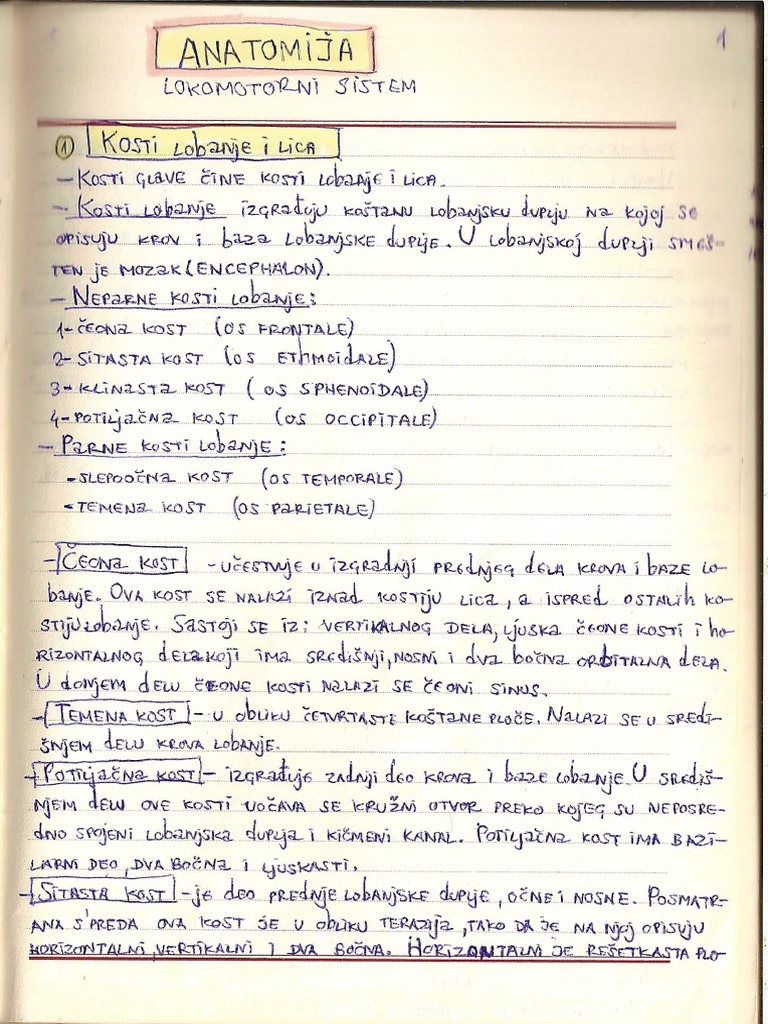 1
ANATOMIJA
LOKOMOTORNI SISTEM
1 KOSTI LOBANJE I LICA
- KOSTI GLAVE ČINE KOSTI LOBANJE I LICA.
- KOSTI LOBANJE IZGRAĐUJU KOŠTANU LOBANJSKU DUPLJU NA KOJOJ SE
OPISUJU KROV I BAZA LOBANJSKE DUPLJE. U LOBANJSKOJ DUPLJI SMEŠ-
TEN JE MOZAK (ENCEPHALON).
- NEPARNE KOSTI LOBANJE:
1-ČEONA KOST (OS FRONTALE)
2-SITASTA KOST (OS ETHMOIDALE)
3-KLINASTA KOST (OS SPHENOIDALE)
4-POTILJAČNA KOST (OS OCCIPITALE)
- PARNE KOSTI LOBANJE:
-SLEPOOČNA KOST (OS TEMPORALE)
-TEMENA KOST (OS PARIETALE)
- ČEONA KOST - UČESTVUJE U IZGRADNJI PREDNJEG DELA KROVA I BAZE LO-
BANJE. OVA KOST SE NALAZI IZNAD KOSTIJU LICA, A ISPRED OSTALIH KO-
STIJU LOBANJE. SASTOJI SE IZ: VERTIKALNOG DELA, LJUSKA ČEONE KOSTI I HO-
RIZONTALNOG DELA KOJI IMA SREDIŠNJI, NOSNI I DVA BOČNA ORBITALNA DELA.
U DONJEM DELU ČEONE KOSTI NALAZI SE ČEONI SINUS.
- TEMENA KOST - U OBLIKU ČETVRTASTE KOŠTANE PLOČE. NALAZI SE U SREDI-
ŠNJEM DELU KROVA LOBANJE.
- POTILJAČNA KOST - IZGRAĐUJE ZADNJI DEO KROVA I BAZE LOBANJE. U SREDIŠ-
NJEM DELU OVE KOSTI UOČAVA SE KRUŽNI OTVOR PREKO KOJEG SU NEPOSRE-
DNO SPOJENI LOBANJSKA DUPLJA I KIČMENI KANAL. POTILJAČNA KOST IMA BAZI-
LARNI DEO, DVA BOČNA I LJUSKASTI.
- SITASTA KOST - JE DEO PREDNJE LOBANJSKE DUPLJE, OČNE I NOSNE. POSMATR-
ANA S'PREDA OVA KOST JE U OBLIKU TERAZIJA, TAKO DA JE NA NJOJ OPISUJU
HORIZONTALNI, VERTIKALNI I DVA BOČNA. HORIZONTALNI JE REŠETKASTA PLO-